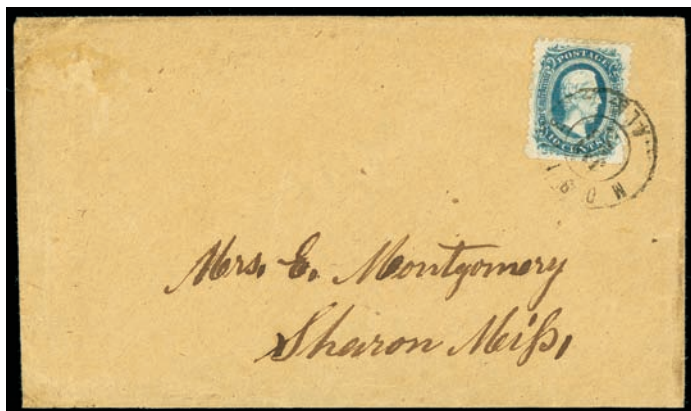 POSTAGE
TEN CENTS
MOB
ALA
Mrs. E. Montgomery
Sharon Miſs,